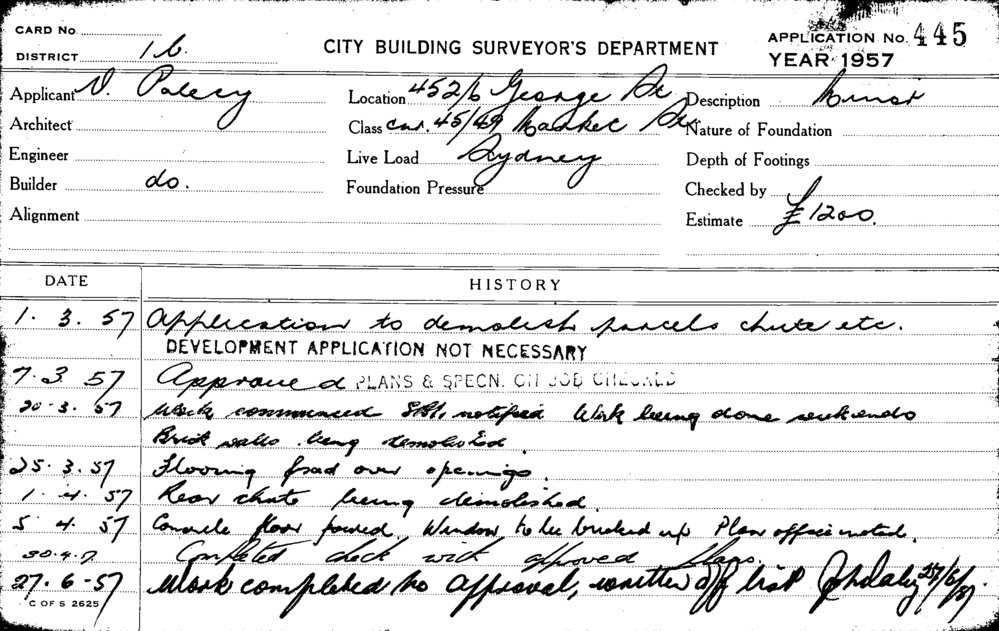 CARD No.
DISTRICT 1b
CITY BUILDING SURVEYOR'S DEPARTMENT
APPLICATION No. 445
YEAR 1957
Applicant V. Location 452/6 George St Description
Architect Class cnr. 45/49 Market St Nature of Foundation
Engineer Live Load Sydney Depth of Footings
Builder do. Foundation Pressure Checked by
Alignment Estimate £1200.
DATE HISTORY
1. 3. 57 Application to demolish parcels chute etc.
DEVELOPMENT APPLICATION NOT NECESSARY
7. 3. 57 Approved PLANS & SPECN. ON JOB CHECKED
20. 3. 57 Work commenced notified Work being done weekends
Brick walls being demolished.
25. 3. 57 Flooring fixed over openings.
1. 4. 57 Rear chute being demolished.
5. 4. 57 Concrete floor poured. Window to be bricked up Plan office noted.
30. 4. 7. Completed check with approved plans.
27. 6 - 57 Work completed to approval, written off list 27/6/57.
C OF S 2625